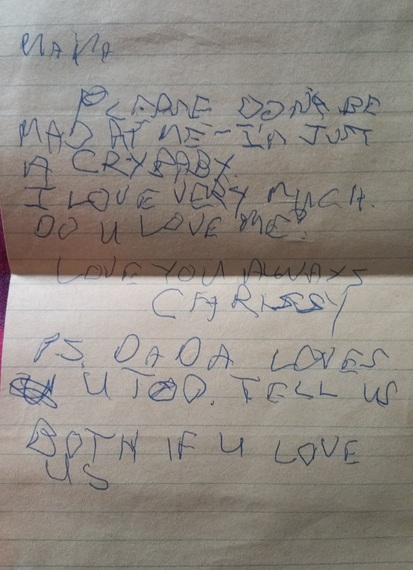 MAMA
PLEASE DON'T BE
MAD AT ME - I'M JUST
A CRYBABY.
I LOVE VERY MUCH.
DO U LOVE ME?
LOVE YOU ALWAYS
PS. DADA LOVES
U TOO. TELL US
BOTH IF U LOVE
US